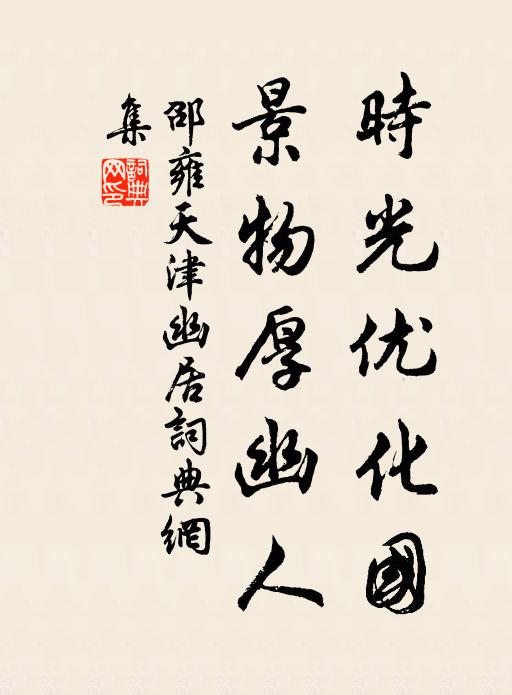 時光优化國
景物厚幽人
邵雍天津幽居詞典網
集
詞典網印